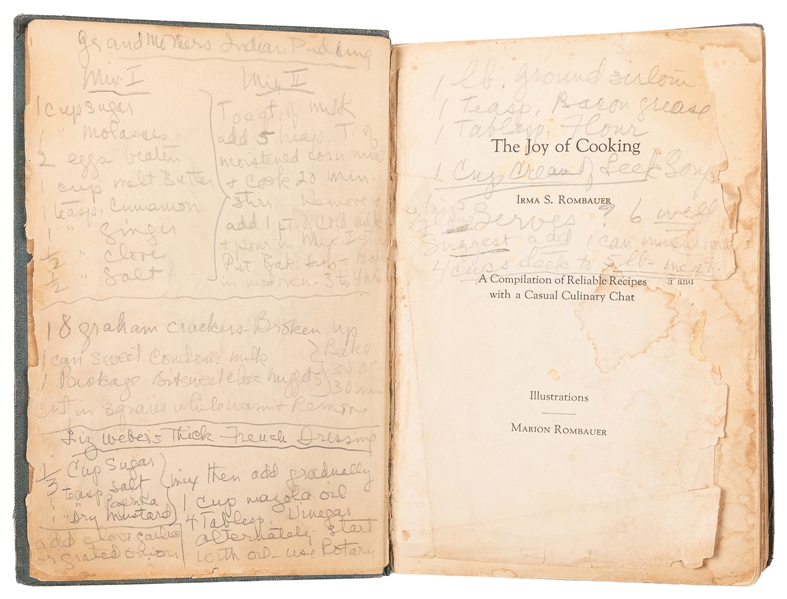 Grandmothers Indian Pudding
Mix I
1 cup Sugar
1 " Molasses
2 eggs beaten
1 cup melt Butter
1 teasp. Cinnamon
1 " Ginger
½ " Cloves
½ " Salt
Mix II
To 1 qt. of milk
add 5 heap. T. of
moistened corn meal
+ Cook 20 min.
Stir. Remove
add 1 pt. of Cold milk
+ pour in Mix I
Put Bak. dish
in mod. oven - 3 to
18 graham crackers - Broken up
1 can sweet Condens milk
1 Package sweet choc nuggets
Bake
350
30 min
Cut in squares while warm + Remove
Liz Webers Thick French Dressing
⅓ Cup Sugar
1 teasp. Salt
1 " Paprika
1 " Dry Mustard
add clove garlic
or grated onion
mix then add gradually
1 cup mazola oil
4 Tablesp. Vinegar
alternately start
with oil - use Rotary
1 lb. ground sirloin
1 teasp. Bacon grease
1 Tablesp. Flour
The Joy of Cooking
1 Cup Cream of Leek Soup
Irma S. Rombauer
Serves 6 well
Suggest add 1 can
4 cups to 5 lbs meat
A Compilation of Reliable Recipes
and
with a Casual Culinary Chat
Illustrations
Marion Rombauer